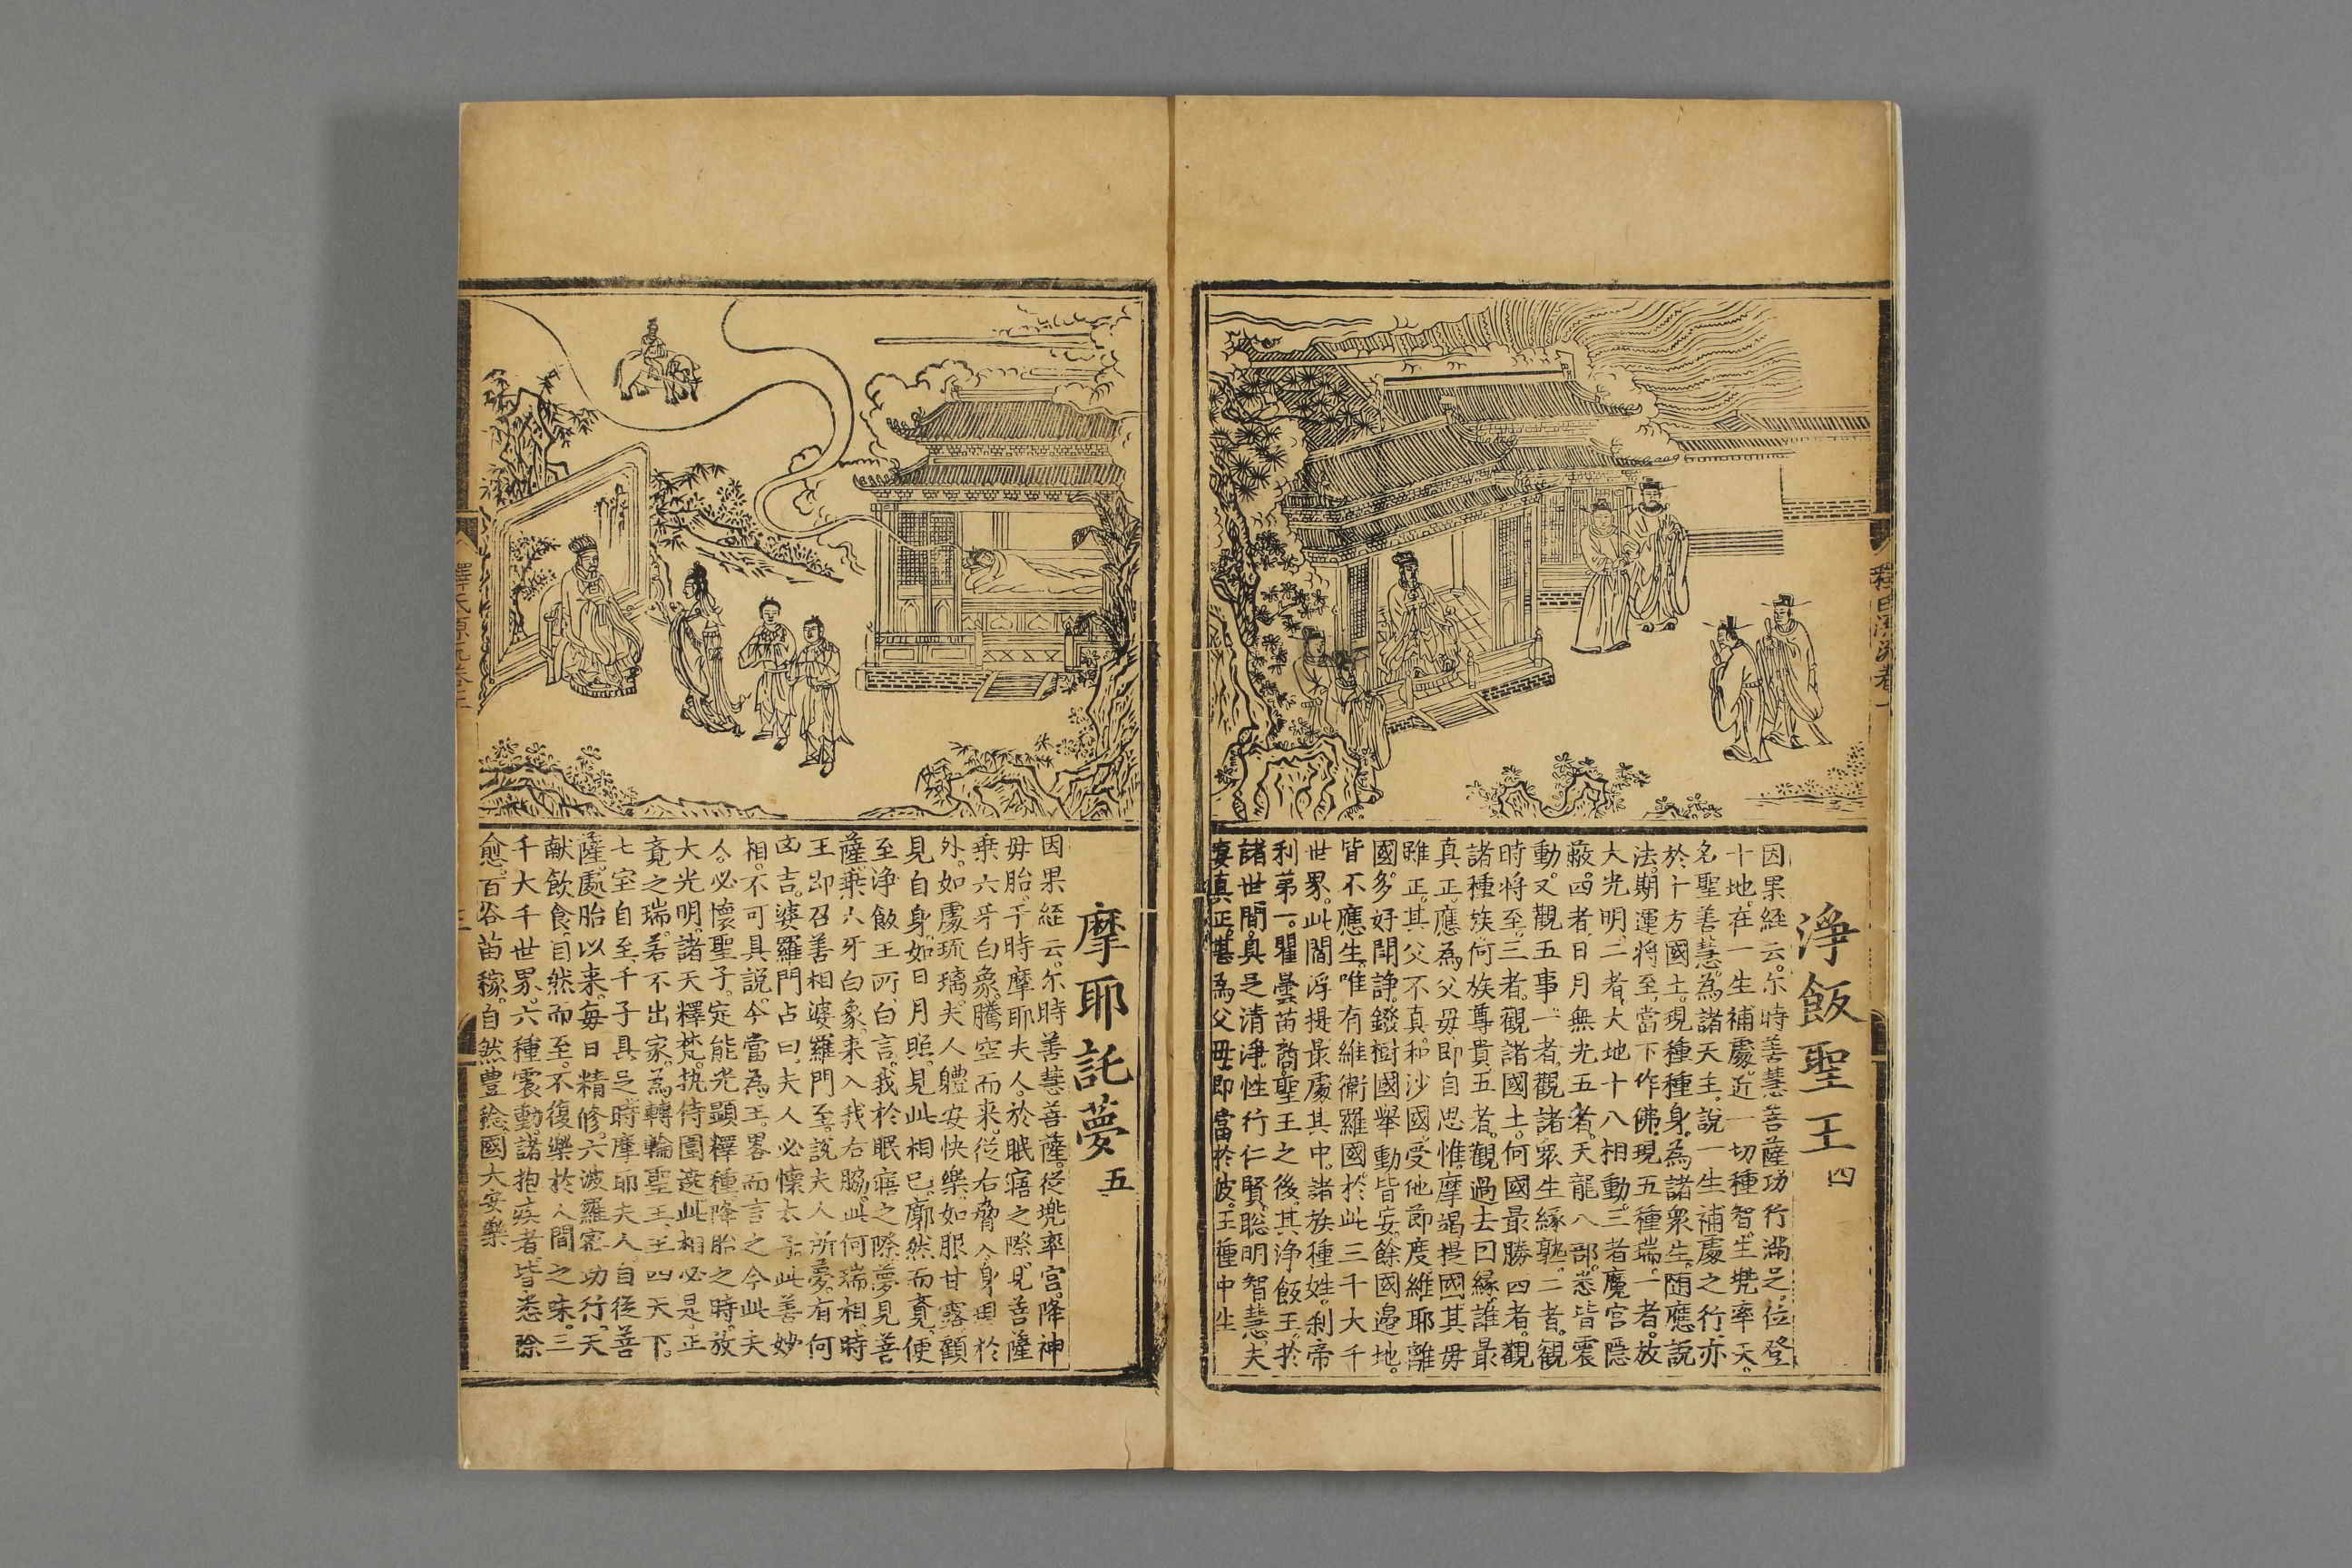 淨飯聖王 四
因果経云。尓時善慧菩薩功行滿足。位登
十地。在一生補處。近一切種智。生兠率天。
名聖善慧。為諸天主。說一生補處之行。亦
於十方國土。現種種身。為諸衆生。随應說
法。期運将至。當下作佛。現五種瑞。一者。放
大光明。二者。大地十八相動。三者魔宫隠
蔽。四者。日月無光。五者。天龍八部。悉皆震
動。又觀五事。一者。觀諸衆生緣熟。二者。觀
時将至。三者。觀諸國土。何國最勝。四者。觀
諸種族何族尊貴。五者。觀過去因緣。誰最
真正。應為父母。即自思惟。摩竭提國。其母
雖正。其父不真。和沙國。受他節度。維耶離
國。多好鬪諍。鏺樹國。舉動皆妄。餘國邉地。
皆不應生。唯有維衛羅國。於此三千大千
世界。此閻浮提最處其中。諸族種姓。刹帝
利苐一。瞿曇苗裔。聖王之後。其淨飯王。於
諸世間。具足清淨。性行仁賢。聡明智慧。夫
妻真正。甚為父母。即當於彼。王種中生
摩耶託夢 五
因果経云。尓時善慧菩薩。從兠率宫。降神
母胎。于時摩耶夫人。於眠寤之際。見菩薩
乗六牙白象。騰空而来。從右脅入。身現於
外。如處琉璃。夫人體安快樂。如服甘露。顧
見自身。如日月照。見此相已。廓然而覺。便
至淨飯王所。白言。我於眠寤之際。夢見菩
薩。乗六牙白象。来入我右脇。此何瑞相。時
王即召善相婆羅門至。說夫人所夢。有何
凶吉。婆羅門占曰。夫人必懐太子。此善妙
相。不可具說。今當為王。畧而言之。今此夫
人。必懐聖子。定能光顯釋種。降胎之時。放
大光明。諸天釋梵。執侍圍遶。此相必是正
覺之瑞。若不出家。為轉輪聖王。王四天下。
七宝自至。千子具足。時摩耶夫人。自從菩
薩。處胎以来。每日精修六波羅宻功行。天
献飲食。自然而至。不復樂於人間之味。三
千大千世界。六種震動。諸抱疾者。皆悉除
愈。百谷苗稼。自然豊稔。國大安樂